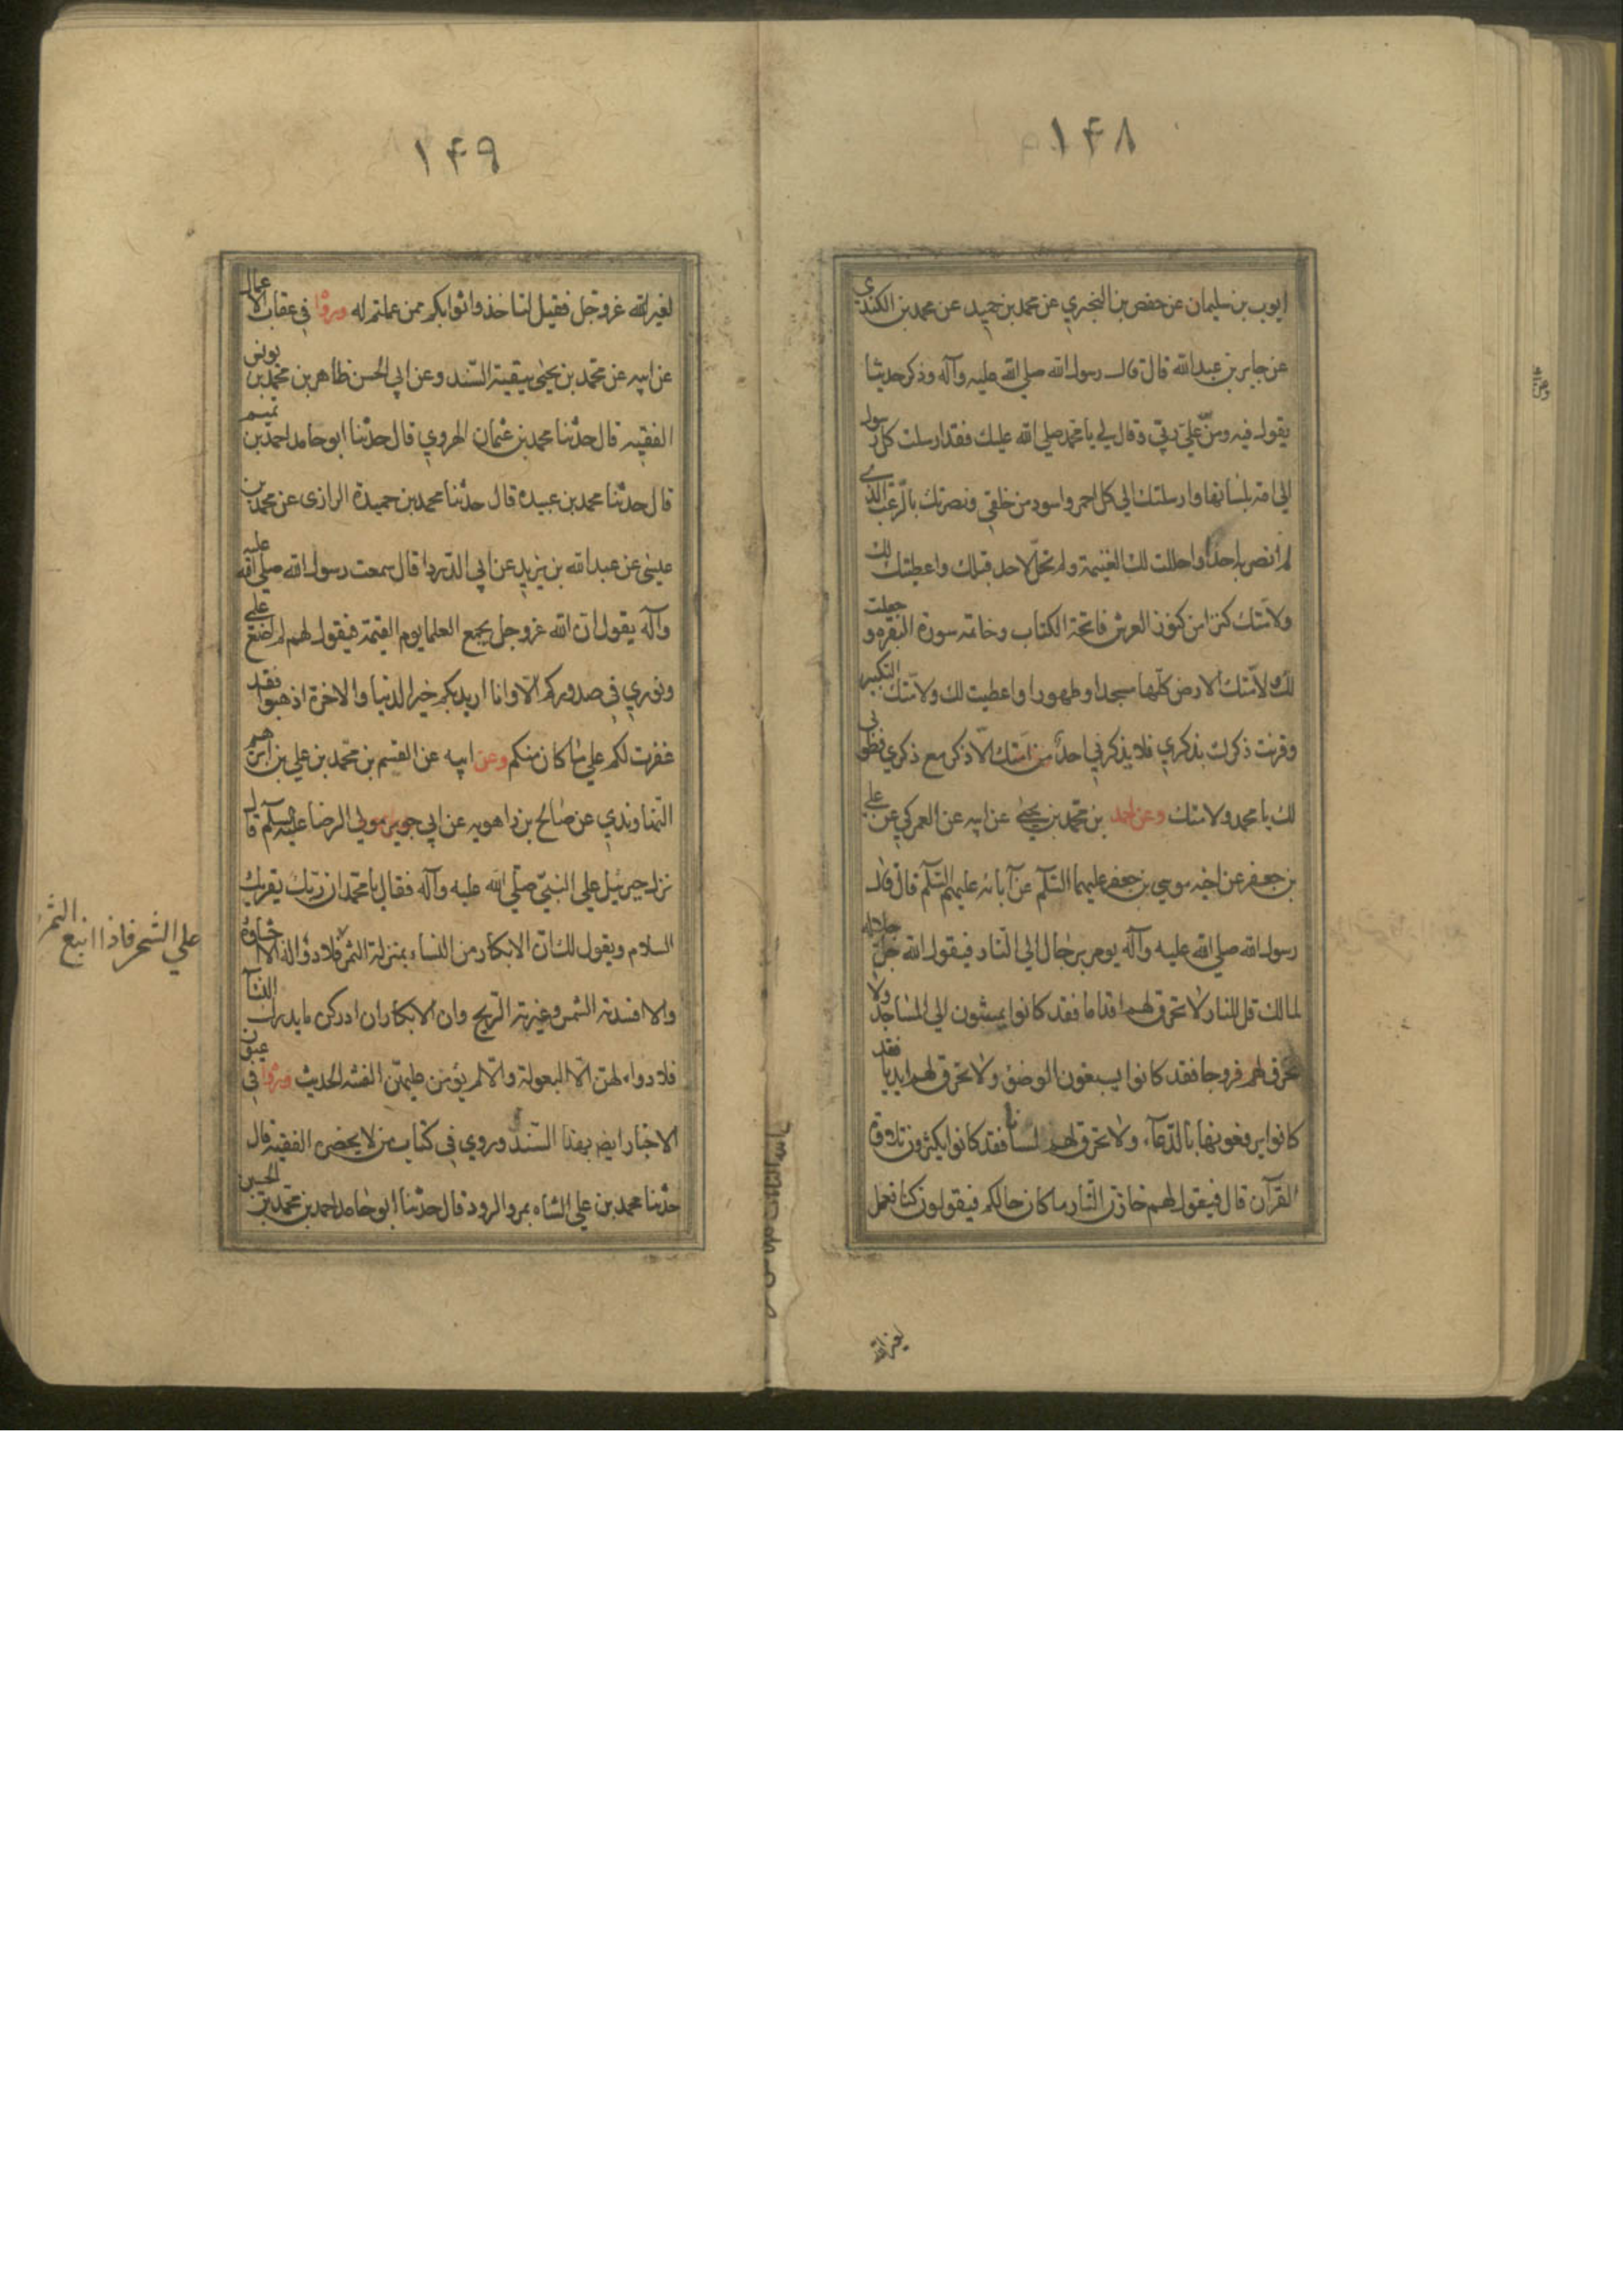 ۱۴۸
ايوب بن سليمان عن حفص بن البختري عن محمد بن حميد عن محمد بن الكندي
عن جابر بن عبد الله قال قال رسول الله صلي الله عليه وآله وذكر حديثا
يقول فيه ومنّ عليّ ربّي وقال لي يا محمد صلي الله عليك فقد ارسلت كل رسول
الي امته بلسانها وارسلتك الي كل احمر واسود من خلقي ونصرتك بالرّعب الذي
لم انصر به احداً واحللت لك الغنيمة ولم تحلّ لاحد قبلك واعطيتك لك
ولامّتك كنزا من كنوز العرش فاتحة الكتاب وخاتمه سورة البقره و جعلت
لك ولامّتك الارض كلّها مسجدا وطهورا واعطيت لك ولامّتك التكبير
وقرنت ذكرك بذكري فلا يذكرني احدٌ من امّتك الّا ذكرك مع ذكري فطوبي
لك يا محمد ولامتك وعن احمد بن محمّد بن يحيي عن ابيه عن العمركي عن علي
بن جعفر عن اخيه موسي بن جعفر عليهما السّلم عن آبائه عليهم السّلم قال قال
رسول الله صلي الله عليه وآله يومر برجال الي النّار فيقول الله جلّ جلاله
لمالك قل للنار لا تحرق لهم اقداما فقد كانوا يمشون الي المساجد ولا
تحرق لهم فروجا فقد كانوا يسبغون الوضؤ ولا تحرق لهم ايديا فقد
كانوا يرفعونها بالدّعآء ولا تحرق لهم لسانا فقد كانوا يكثرون تلاوة
القرآن قال فيقول لهم خازن النّار ما كان حالكم فيقولون كنا نعمل
لغير الله
۱۴۹
لغير الله عزوجل فقيل لنا خذوا ثوابكم ممن عملتم له ورواْ في عقاب الاعمال
عن ابيه عن محمّد بن يحيي ببقية السّند وعن ابي الحسن طاهر بن محمّد بن يونس
الفقيه قال حدّثنا محمد بن عثمان الهروي قال حدّثنا ابو حامد احمد بن تميم
قال حدثنا محمد بن عبيده قال حدثنا محمد بن حميدة الرازي عن محمد بن
عيسي عن عبد الله بن يزيد عن ابي الدّردا قال سمعت رسول الله صلي الله عليه
وآله يقول انّ الله عزوجل يجمع العلما يوم القيمة فيقول لهم لم اضع علمي
ونوري في صدوركم الّا وانا اريد بكم خير الدنيا والاخرة اذهبوا فقد
غفرت لكم علي ما كان منكم وعن ابيه عن القسم بن محمّد بن علي بن ابرهيم
النّهاوندي عن صالح بن راهويه عن ابي جوير مولي الرضا عليه السّلم قال
نزل جبرئيل علي النبيّ صلّي الله عليه وآله فقال يا محمّد ان ربّك يقريك
السلام ويقول لك انّ الابكار من النساء بمنزلة الثمر فلا دوآء له الا اجتناؤه
والا افسدته الشمس وغيرته الرّيح وان الابكار ان ادركن ما يدرك النسآ
فلا دواء لهنّ الّا البعولة والّا لم يؤمن عليهنّ الفتنة الحديث ورواْ في عيون
الاخبار ايض بهذا السّند وروي في كتاب من لا يحضره الفقيه قال
حدّثنا محمد بن علي الشاه بمرو الرود قال حدّثنا ابو حامد احمد بن محمّد بن الحسين
علي الشّجر فاذا اينع الثّمر